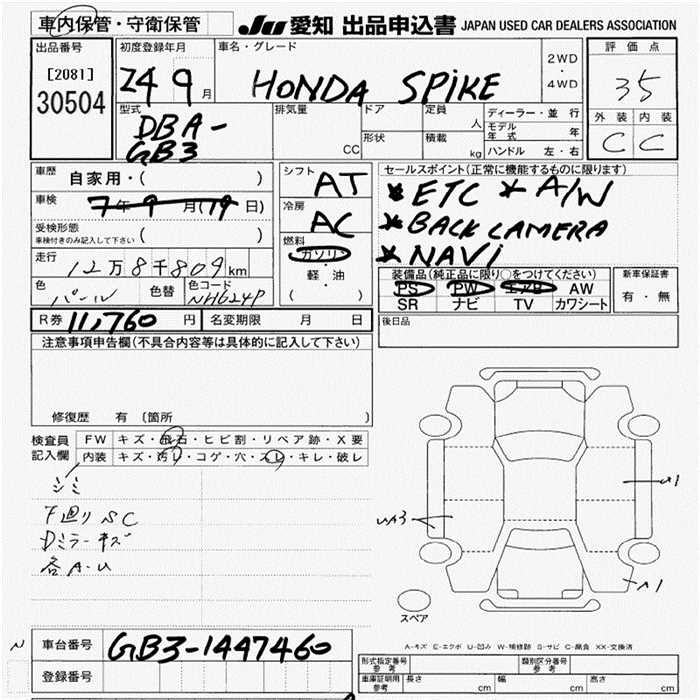 車内保管・守衛保管 JU 愛知 出品申込書 JAPAN USED CAR DEALERS ASSOCIATION
出品番号 初度登録年月 車名・グレード 2WD・4WD 評価点
[2081] 24 9月 HONDA SPIKE 35
30504
型式 排気量 ドア 定員 人 ディーラー・並行 外装 内装
DBA- モデル年式 年
GB3 CC 形状 積載 kg ハンドル 左・右 C C
車歴 自家用・( ) シフト AT セールスポイント(正常に機能するものに限ります)
車検 7年9月(19日) 冷房 AC * ETC * A/W
受検形態 * BACK CAMERA
車検付きのみ記入して下さい ( ) 燃料 ガソリン * NAVI
走行 12万8千809km 軽・油 装備品(純正品に限り○をつけてください) 新車保証書
色 パール 色替 色コード NH624P ( ) PS PW エアB AW 有・無
SR ナビ TV カワシート
R券 11,760円 名変期限 月 日 後日品
注意事項申告欄(不具合内容等は具体的に記入して下さい)
修復歴 有 〔箇所
検査員 FW キズ・飛石・ヒビ割・リペア跡・X要
記入欄 内装 キズ・汚レ・コゲ・穴・スレ・キレ・破レ
シミ
下廻りSC
Dミラーキズ
各A・U
UA3
U1
A1
スペア
A-キズ E-エクボ U-凹み W-補修跡 S-サビ C-腐食 XX-交換済
N 車台番号 GB3-1447460
登録番号
形式指定番号 参考 類別区分番号 参考
車庫証明用 参考 長さ cm 幅 cm 高さ cm